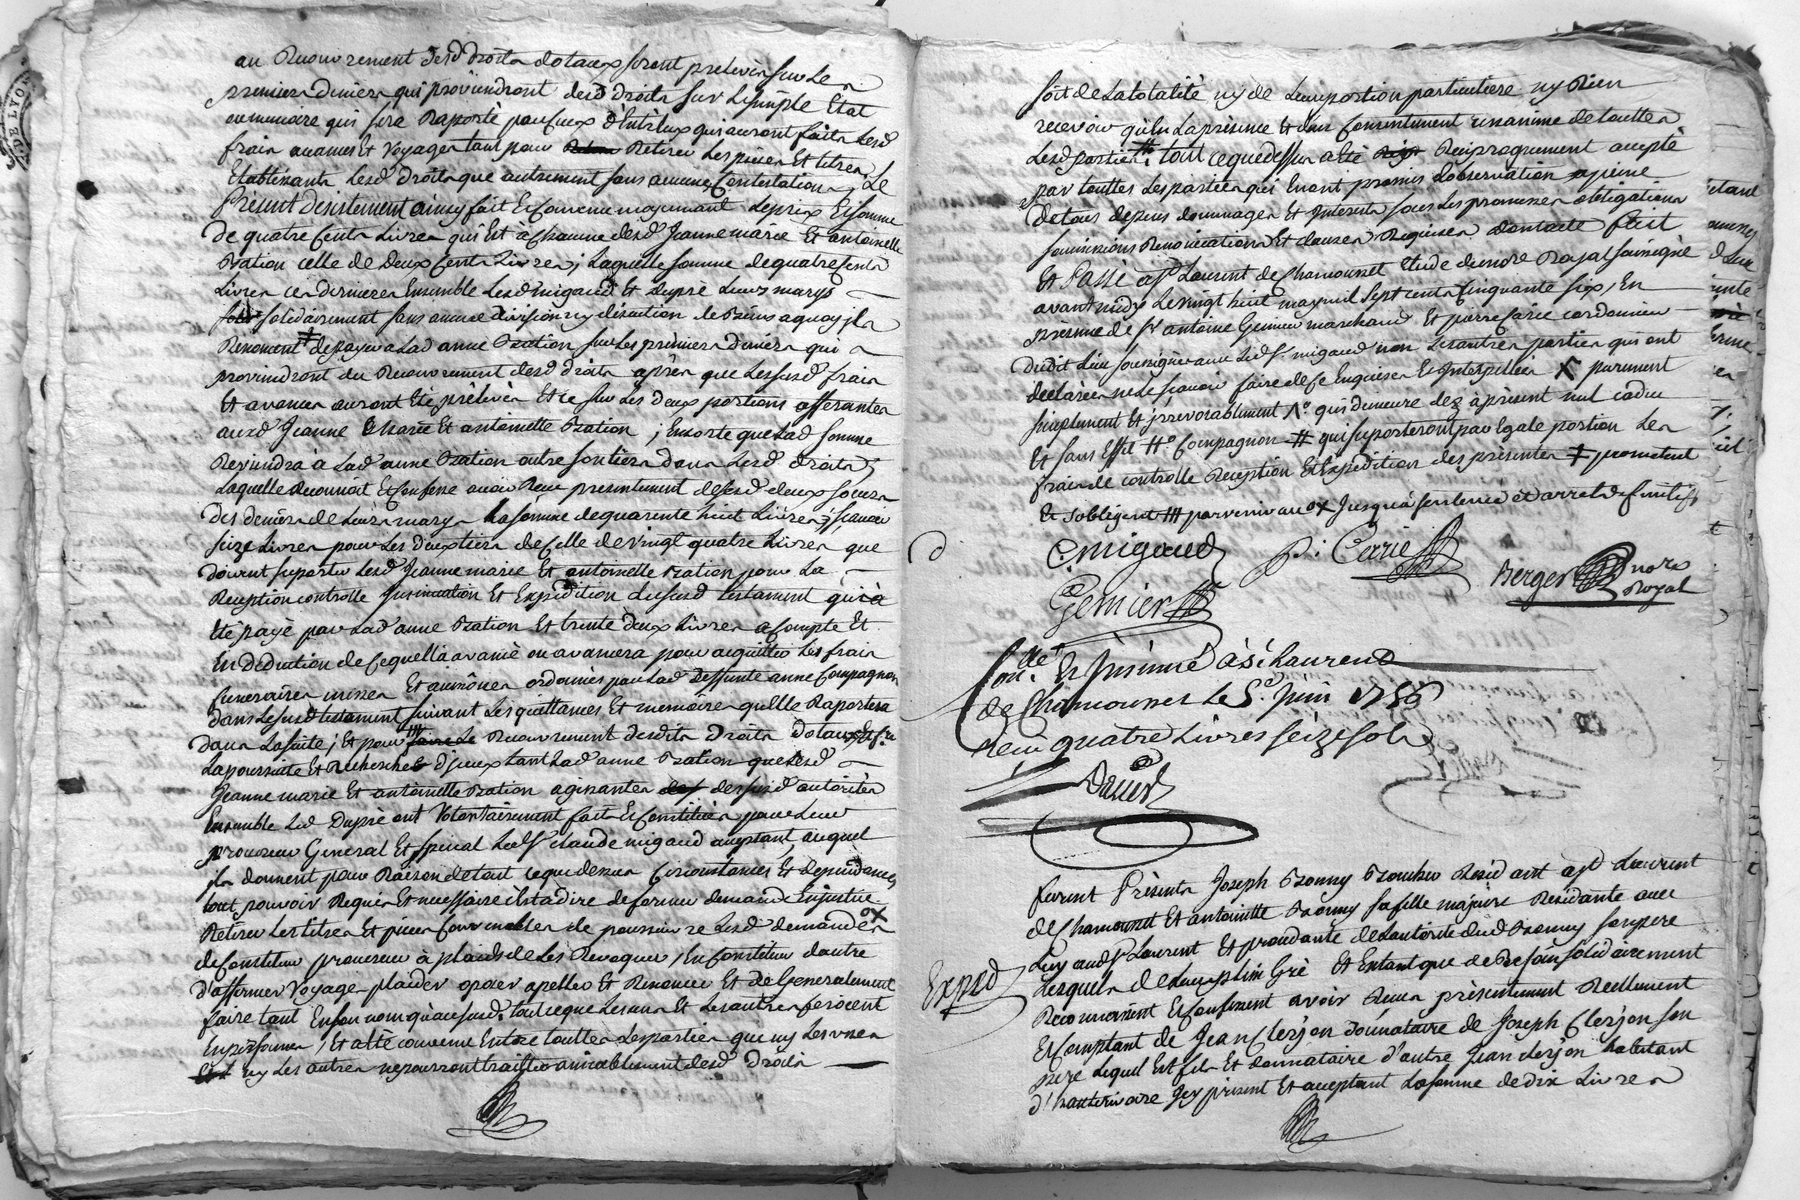 DE LYON
au Recouvrement desd droits dotaux seront prelevés sur les
premiers deniers qui proviendront desd droits sur Lesimple Etat
memoire qui sera Raporté par Ceux d'Entr'eux qui auront fait Lesd
frais avances Et voyages tant pour Retirer Les pieces Et titres
Etablissants Lesd droits que autrement sans aucune Contestation, Le
Présent desistement ainsy fait Et Convenu moyennant Le prix Et somme
de quatre Cents Livres qui Est à Chacune desd Jeanne marie Et antoinette
celle de Deux Cents Livres; Laquelle somme de quatre Cents
Livres ces dernieres Ensemble Lesd migaud Et dupré Leurs marys
solidairement sans aucune division ny discution de biens a quoy ils
Renoncent de payer a Lad anne sur Les premiers deniers qui
proviendront du Recouvrement desd droits après que Lesusd frais
Et avances auront Eté prélevés Et ce sur Les deux portions afferantes
auxd Jeanne Marie Et antoinette ; Ensorte que Lad somme
Reviendra à Lad anne outre son tiers dans Lesd droits;
Laquelle Reconnoit Et Confesse avoir Reçu presentement desesd deux soeurs
des deniers de Leurs marys La somme de quarente huit Livres; sçavoir
seize Livres pour Les deux tiers de Celle de vingt quatre Livres que
doivent suporter Lesd Jeanne marie Et antoinette pour La
Reception controlle Insinuation Et Expedition dususd testament qui a
Eté payé par Lad anne Et trente deux Livres a Compte Et
En déduction de Ce quelle a avancé ou avancera pour acquitter Les frais
funeraires messes Et aumônes ordonnés par Lad deffunte anne Compagnon
dans Le susd testament suivant Les quittances Et memoire qu'elle Raportera
dans La suite; Et pour Recouvrement desdits Droits dotaux Et
La poursuite Et Recherche d'Iceux tant Lad anne que Lesd
Jeanne marie Et antoinette agissantes desusd autorités
Ensemble Led Dupré ont volontairement fait Et Constitué pour Leur
procureur General Et special Led Sr claude migaud acceptant auquel
ils donnent pour Raison de tout ce que dessus Circonstances Et dependances
tout pouvoir Requis Et necessaire c'est à dire de former demande En justice
Retirer Les titres Et pieces Convenables de poursuivre Lesd demandes
de Constituer procureur à plaids de Les Revoquer, En Constituer d'autre
d'affirmer voyages plaider oposer apeller Et Renoncer Et de Generalement
faire tant En son nom qu'au susd tout ce que Les uns Et Les autres feroient
En personnes, Et a été convenu Entre touttes Les parties que ny Les unes
ny Les autres ne pourront traitter amiablement desd droits
soit de La totalité ny de Leur portion particuliere ny Rien
recevoir qu'En La présence Et du Consentement unanime de touttes
Lesd parties. tout ce que dessus a été Reciproquement accepté
par touttes Les parties qui En ont promis L'observation a peine
de tous depens dommages Et Interets sous Les promesses obligations
soumissions Renonciations Et clauses Requises dont acte fait
Et Passé a St Laurent de Chamousset Etude du nore Royal soussigné
avant midy Le vingt huit may mil sept cents Cinquante six, En
presence de Sr antoine Genier marchand Et pierre cordonnier
dudit Lieu soussignés avec Led Sr migaud non Les autres parties qui ont
declarées ne Le sçavoir faire de ce Enquises Et Interpellées X purement
simplement Et jrrevocablement qui demeure dez à présent nul cadu
Et sans Effet Compagnon # qui suporteront par Egale portion Les
frais de controlle Reception Et Expedition des présentes ‡ promettent
Et s'obligent parvenir au Jusqu'à sentence et arret definitif
C. migaud
P: Cerrie
Genier
Berger nore
Royal
Conlé Et Insinué à St Laurent
de Chamousset Le 5e Juin 1756
Reçu quatre Livres seize sols
David
Expéd
furent Présents Joseph Résidant a St Laurent
de Chamousset Et antoinette sa fille majeure Residante avec
Luy aud St Laurent Et procedante de L'autorité dud son pere
Lesquels de Leur plein Gré Et En tant que de Besoin solidairement
Reconnoissent Et Confessent avoir Reçu présentement Reellement
Et Comptant de Jean Clerjon donnataire de Joseph Clerjon son
pere Lequel Est fils Et donnataire d'autre Jean clerjon habitant
d'hauterivoire Icy présent Et acceptant La somme de dix Livres